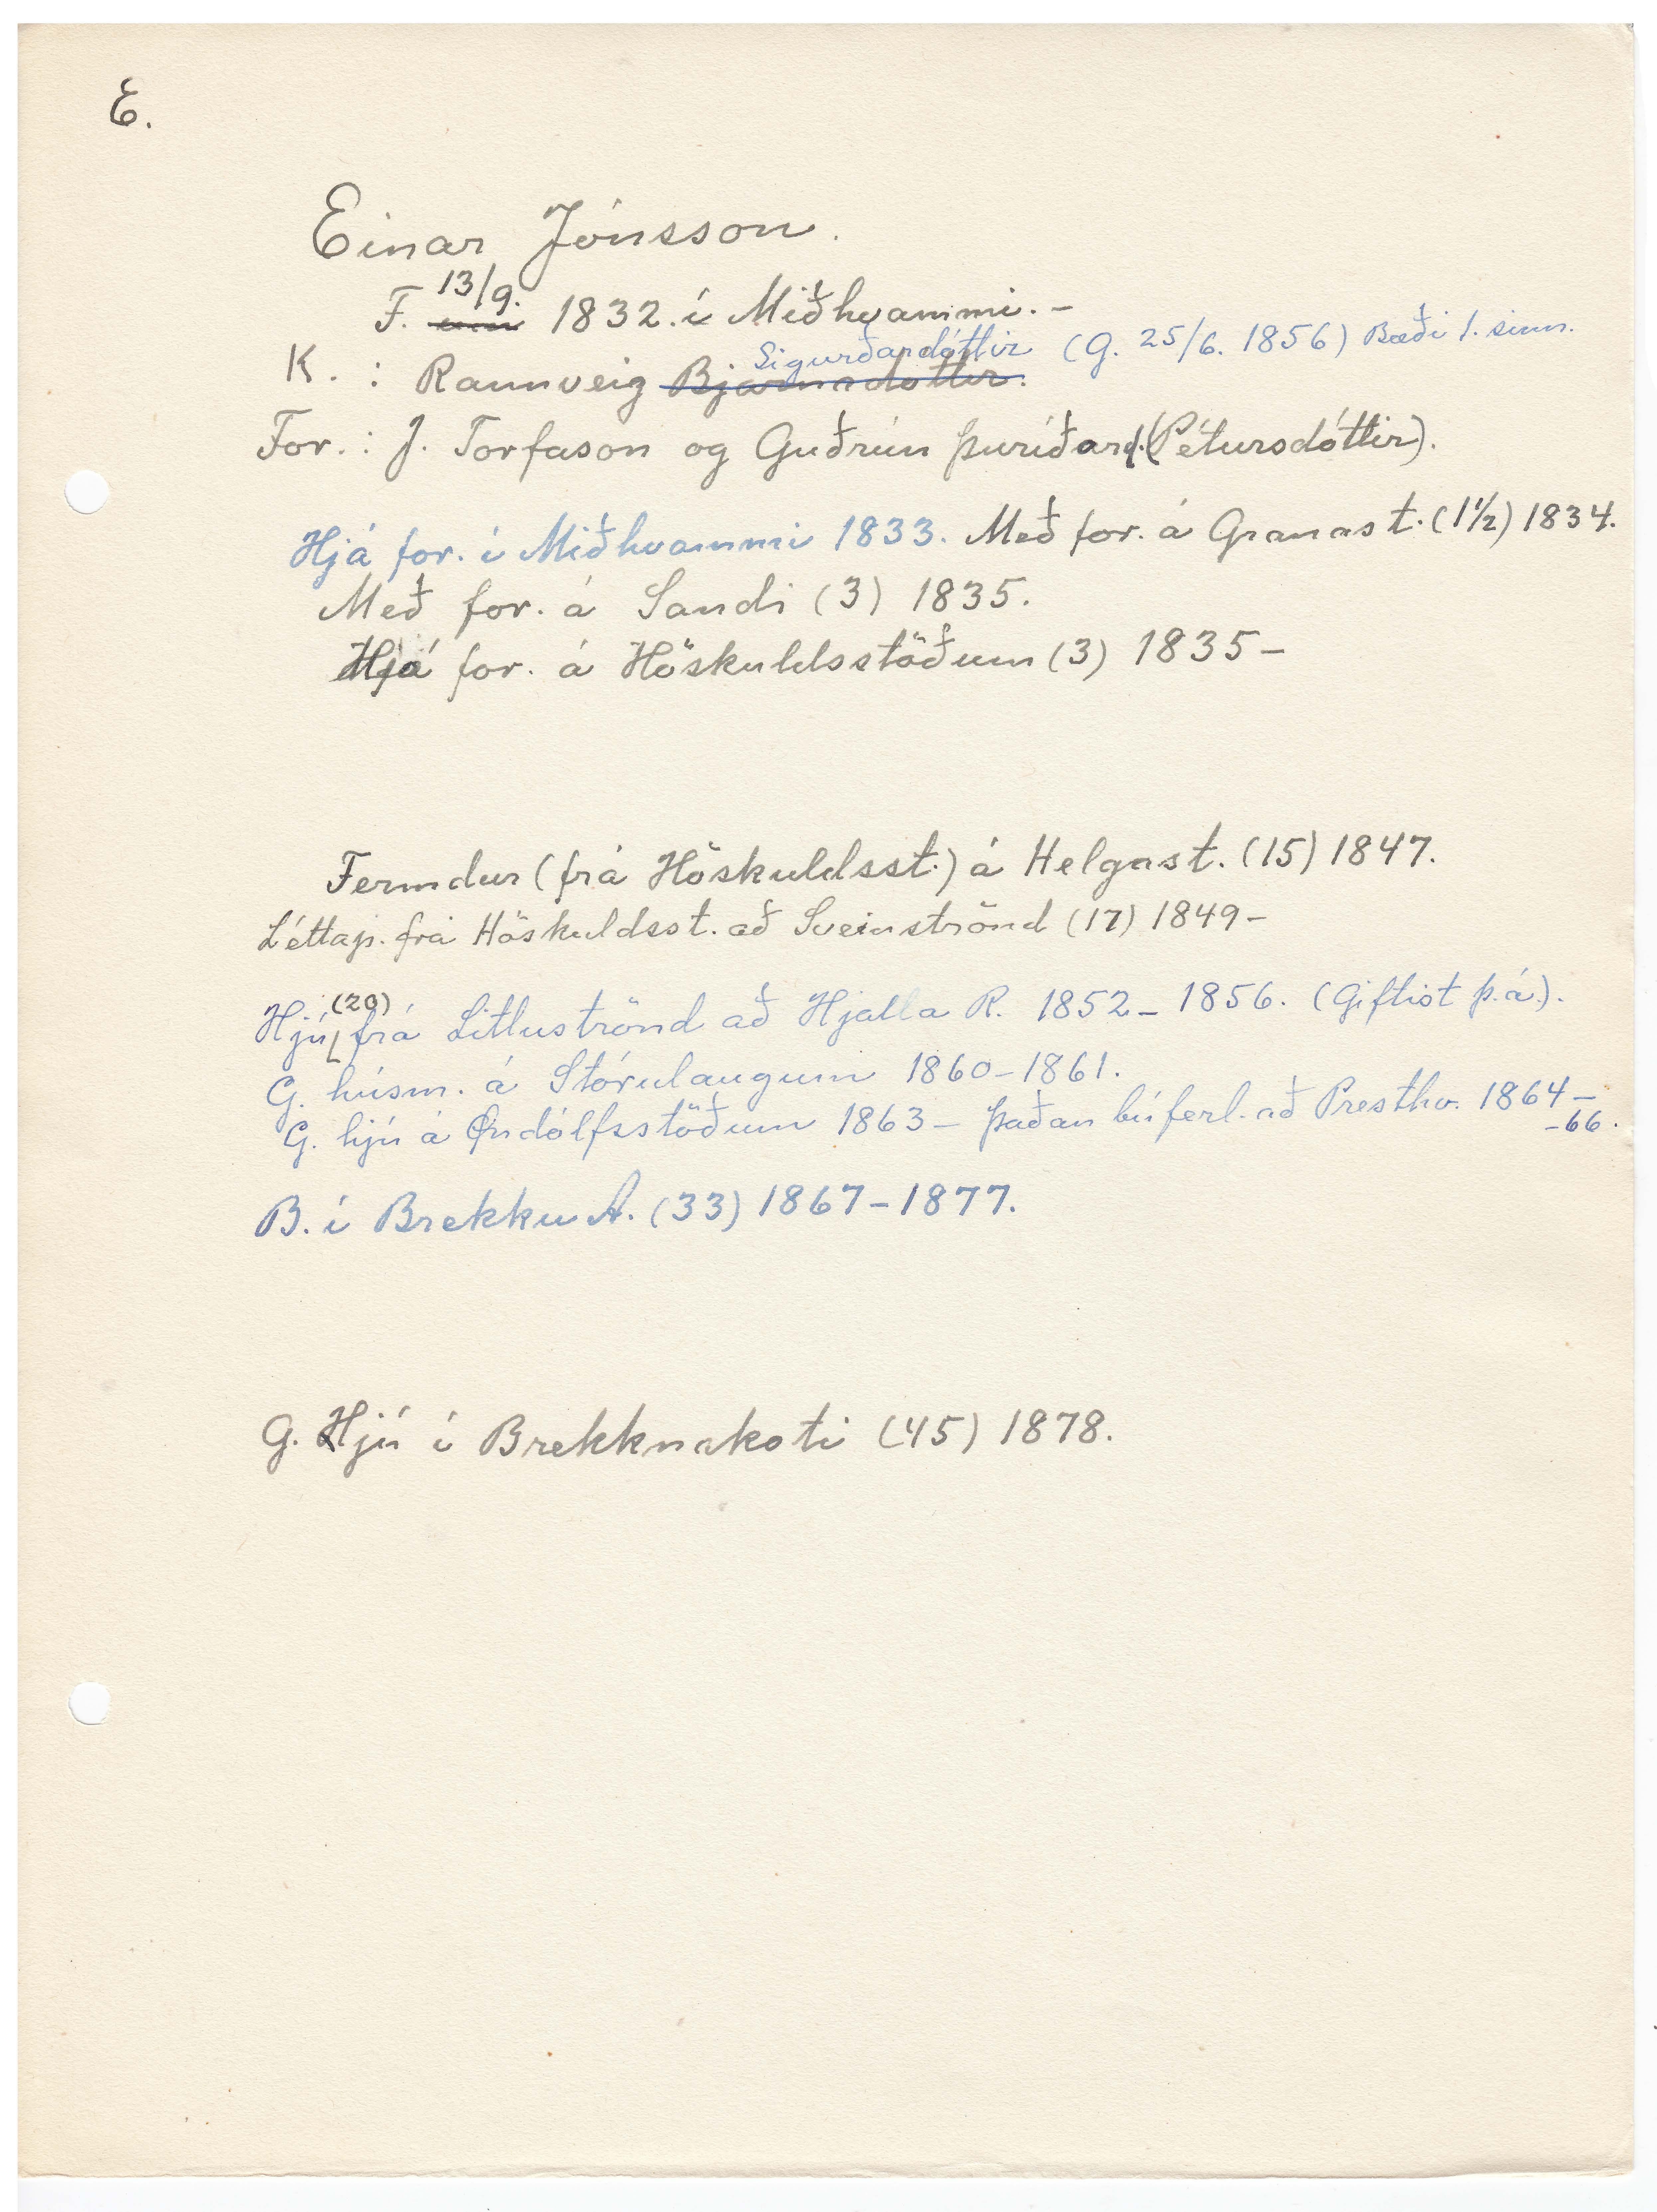 E.
Einar Jónsson.
F. 13/9. 1832. í Miðhvammi. –
K. : Rannveig Bjarnadóttir. Sigurðardóttir (G. 25/6. 1856) Bæði 1. sinn.
For. : J. Torfason og Guðrún Þuríðard. (Pétursdóttir).
Hjá for. í Miðhvammi 1833. Með for. á Granast. (1½) 1834.
Með for. á Sandi (3) 1835.
Hjá for. á Höskuldsstöðum (3) 1835 –
Fermdur (frá Höskuldsst.) á Helgast. (15) 1847.
Léttap. frá Höskuldsst. að Sveinströnd (17) 1849 –
Hjú (20) frá Litluströnd að Hjalla R. 1852 – 1856. (Giftist þ.á.).
G. húsm. á Stórulaugum 1860 – 1861.
G. hjú á Öndólfsstöðum 1863 – þaðan búferl. að Presthv. 1864 –
– 66.
B. í Brekku A. (33) 1867 – 1877.
G. Hjú í Brekknakoti (45) 1878.